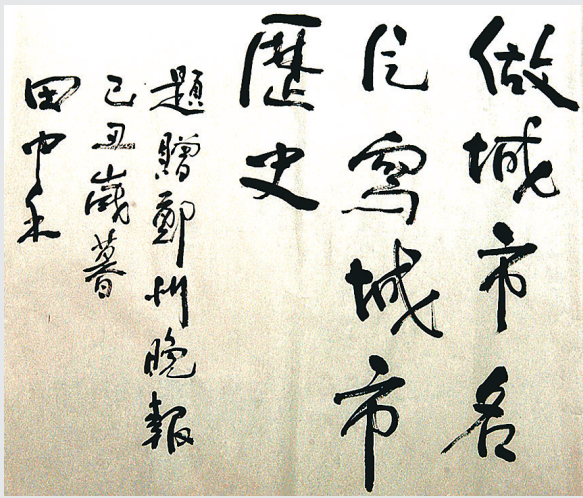 做城市名
片寫城市
歷史
題贈鄭州晚報
己丑歲暮
田中禾